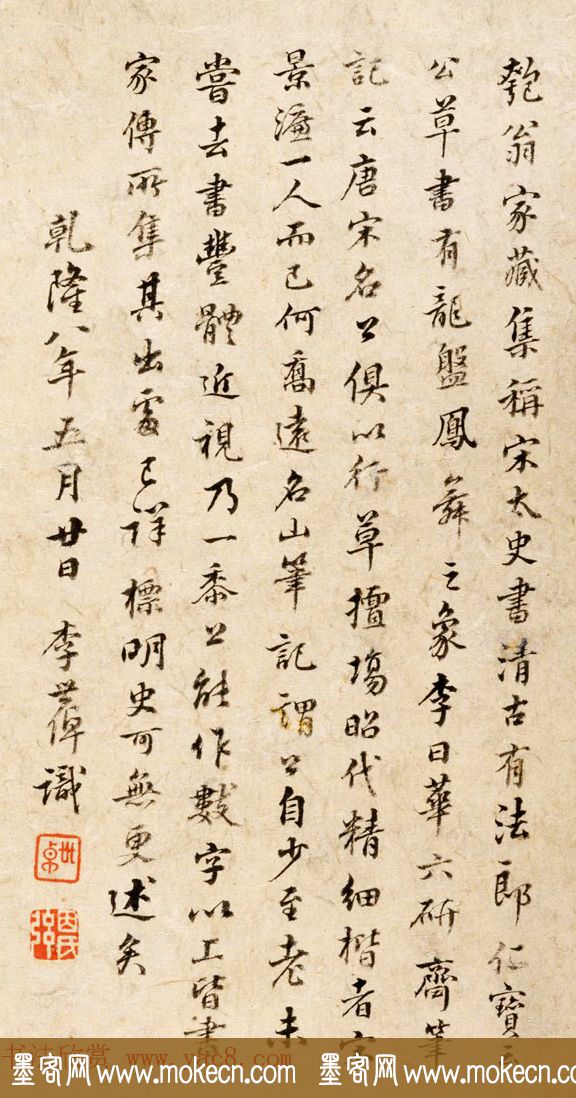 匏翁家藏集稱宋太史書清古有法郎仁寶云
公草書有龍盤鳳舞之象李日華六研齋筆
記云唐宋名公俱以行草擅場昭代精細楷者宋
景濂一人而已何喬遠名山筆記謂公自少至老未
嘗去書豐體近視乃一黍上能作數字以上皆書
家傳所集其出處已詳標明史可無更述矣
乾隆八年五月廿日 李世倬識
世卓
書法欣賞 www.yac8.com
墨客网 www.mokecn.com 墨客网 www.mokecn.com